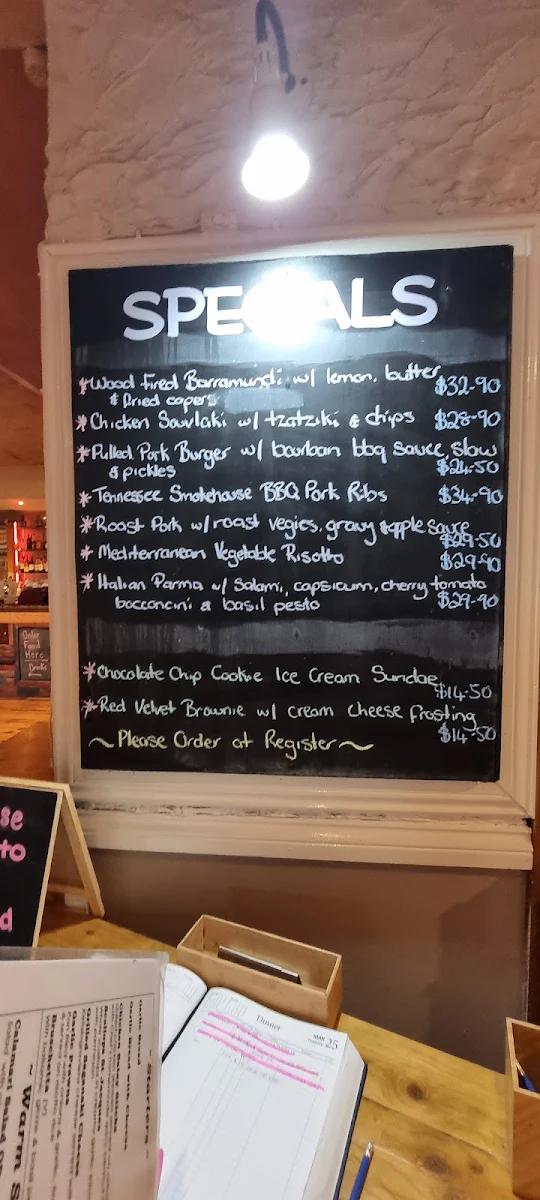 SPECIALS
*Wood Fired Barramundi w/ lemon, butter
& fried capers $32-90
*Chicken Souvlaki w/ tzatziki & chips $28-90
*Pulled Pork Burger w/ bourbon bbq sauce, slaw
& pickles $24-50
*Tennessee Smokehouse BBQ Pork Ribs $34-90
*Roast Pork w/ roast vegies, gravy & apple sauce
$29-50
*Mediterranean Vegetable Risotto $29-90
*Italian Parma w/ Salami, capsicum, cherry tomato
bocconcini & basil pesto $29-90
*Chocolate Chip Cookie Ice Cream Sundae
$14-50
*Red Velvet Brownie w/ cream cheese frosting
$14-50
~Please Order at Register~
Order
Food
Here
Drinks
se
to
d
Dinner
MAR 25
~ Starters ~
Garlic Bread
Bruschetta
~ Warm S
Calamari Salad